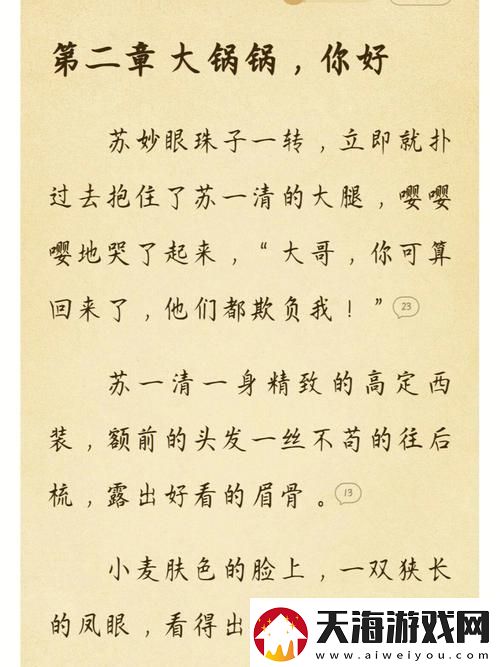 第二章 大锅锅，你好
苏妙眼珠子一转，立即就扑
过去抱住了苏一清的大腿，嘤嘤
嘤地哭了起来，“大哥，你可算
回来了，他们都欺负我！” 23
苏一清一身精致的高定西
装，额前的头发一丝不苟的往后
梳，露出好看的眉骨。 13
小麦肤色的脸上，一双狭长
的凤眼，看得出
天海游戏网
www.aiweiyou.com